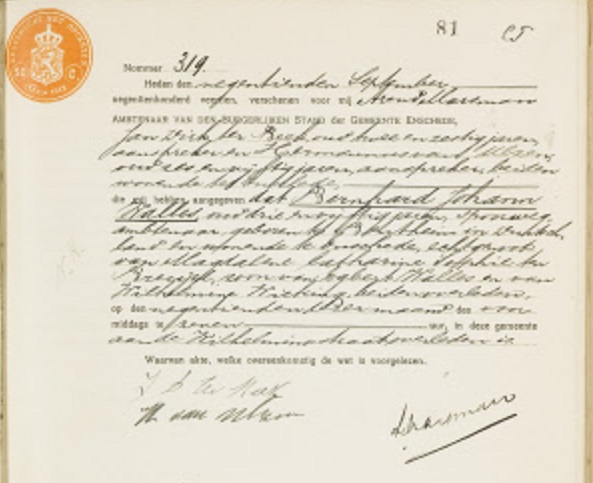 81
Nommer 319.
Heden den negentienden September
negentienhonderd veertien, verschenen voor mij
AMBTENAAR VAN DEN BURGERLIJKEN STAND der GEMEENTE ENSCHEDE,
Jan Dirk ter Beek oud twee en zestig jaren,
aanspreker en Hermannus van Ulzen,
oud zes en vijftig jaren, aanspreker, beiden
wonende te Enschede,
die mij hebben aangegeven dat Bernhard Johann
Walles, oud drie en vijftig jaren, spoorweg-
ambtenaar geboren te Bentheim in Duitsch-
land en wonende te Enschede, echtgenoot
van Magdalene Catharine Sophie
zoon van Egbert Walles en van
Wilhelmina beiden overleden,
op den negentienden dezer maand des voor
middags te zeven uur, in deze gemeente
aan de Wilhelminastraat overleden is.
Waarvan akte, welke overeenkomstig de wet is voorgelezen.
J D ter Beek
H van Ulzen